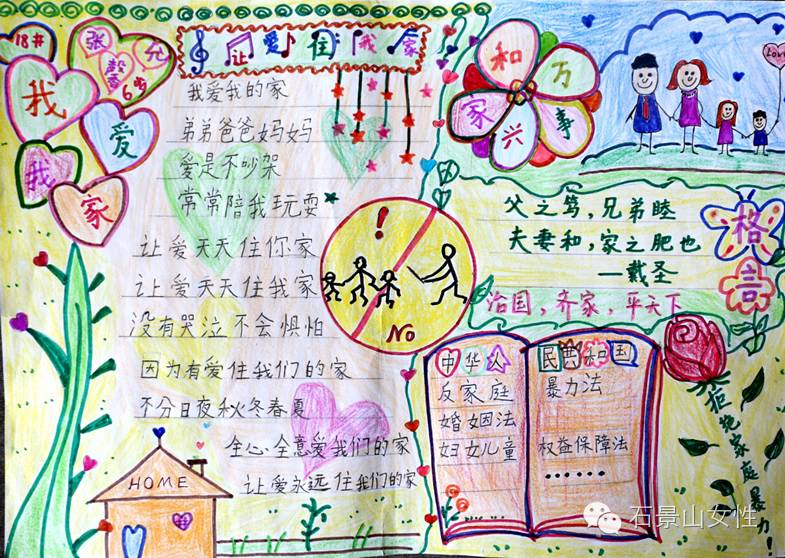 18#
张
允
6岁
我
爱
我
家
让爱住我家
我爱我的家
弟弟爸爸妈妈
爱是不吵架
常常陪我玩耍
让爱天天住你家
让爱天天住我家
没有哭泣不会惧怕
因为有爱住我们的家
不分日夜秋冬春夏
全心全意爱我们的家
让爱永远住我们的家
HOME
家和万事兴
Love
父之笃，兄弟睦
夫妻和，家之肥也
—戴圣
治国，齐家，平天下
格言
!
NO
中华人民共和国
反家庭暴力法
婚姻法
妇女儿童权益保障法
......
拒绝家庭暴力！
石景山女性